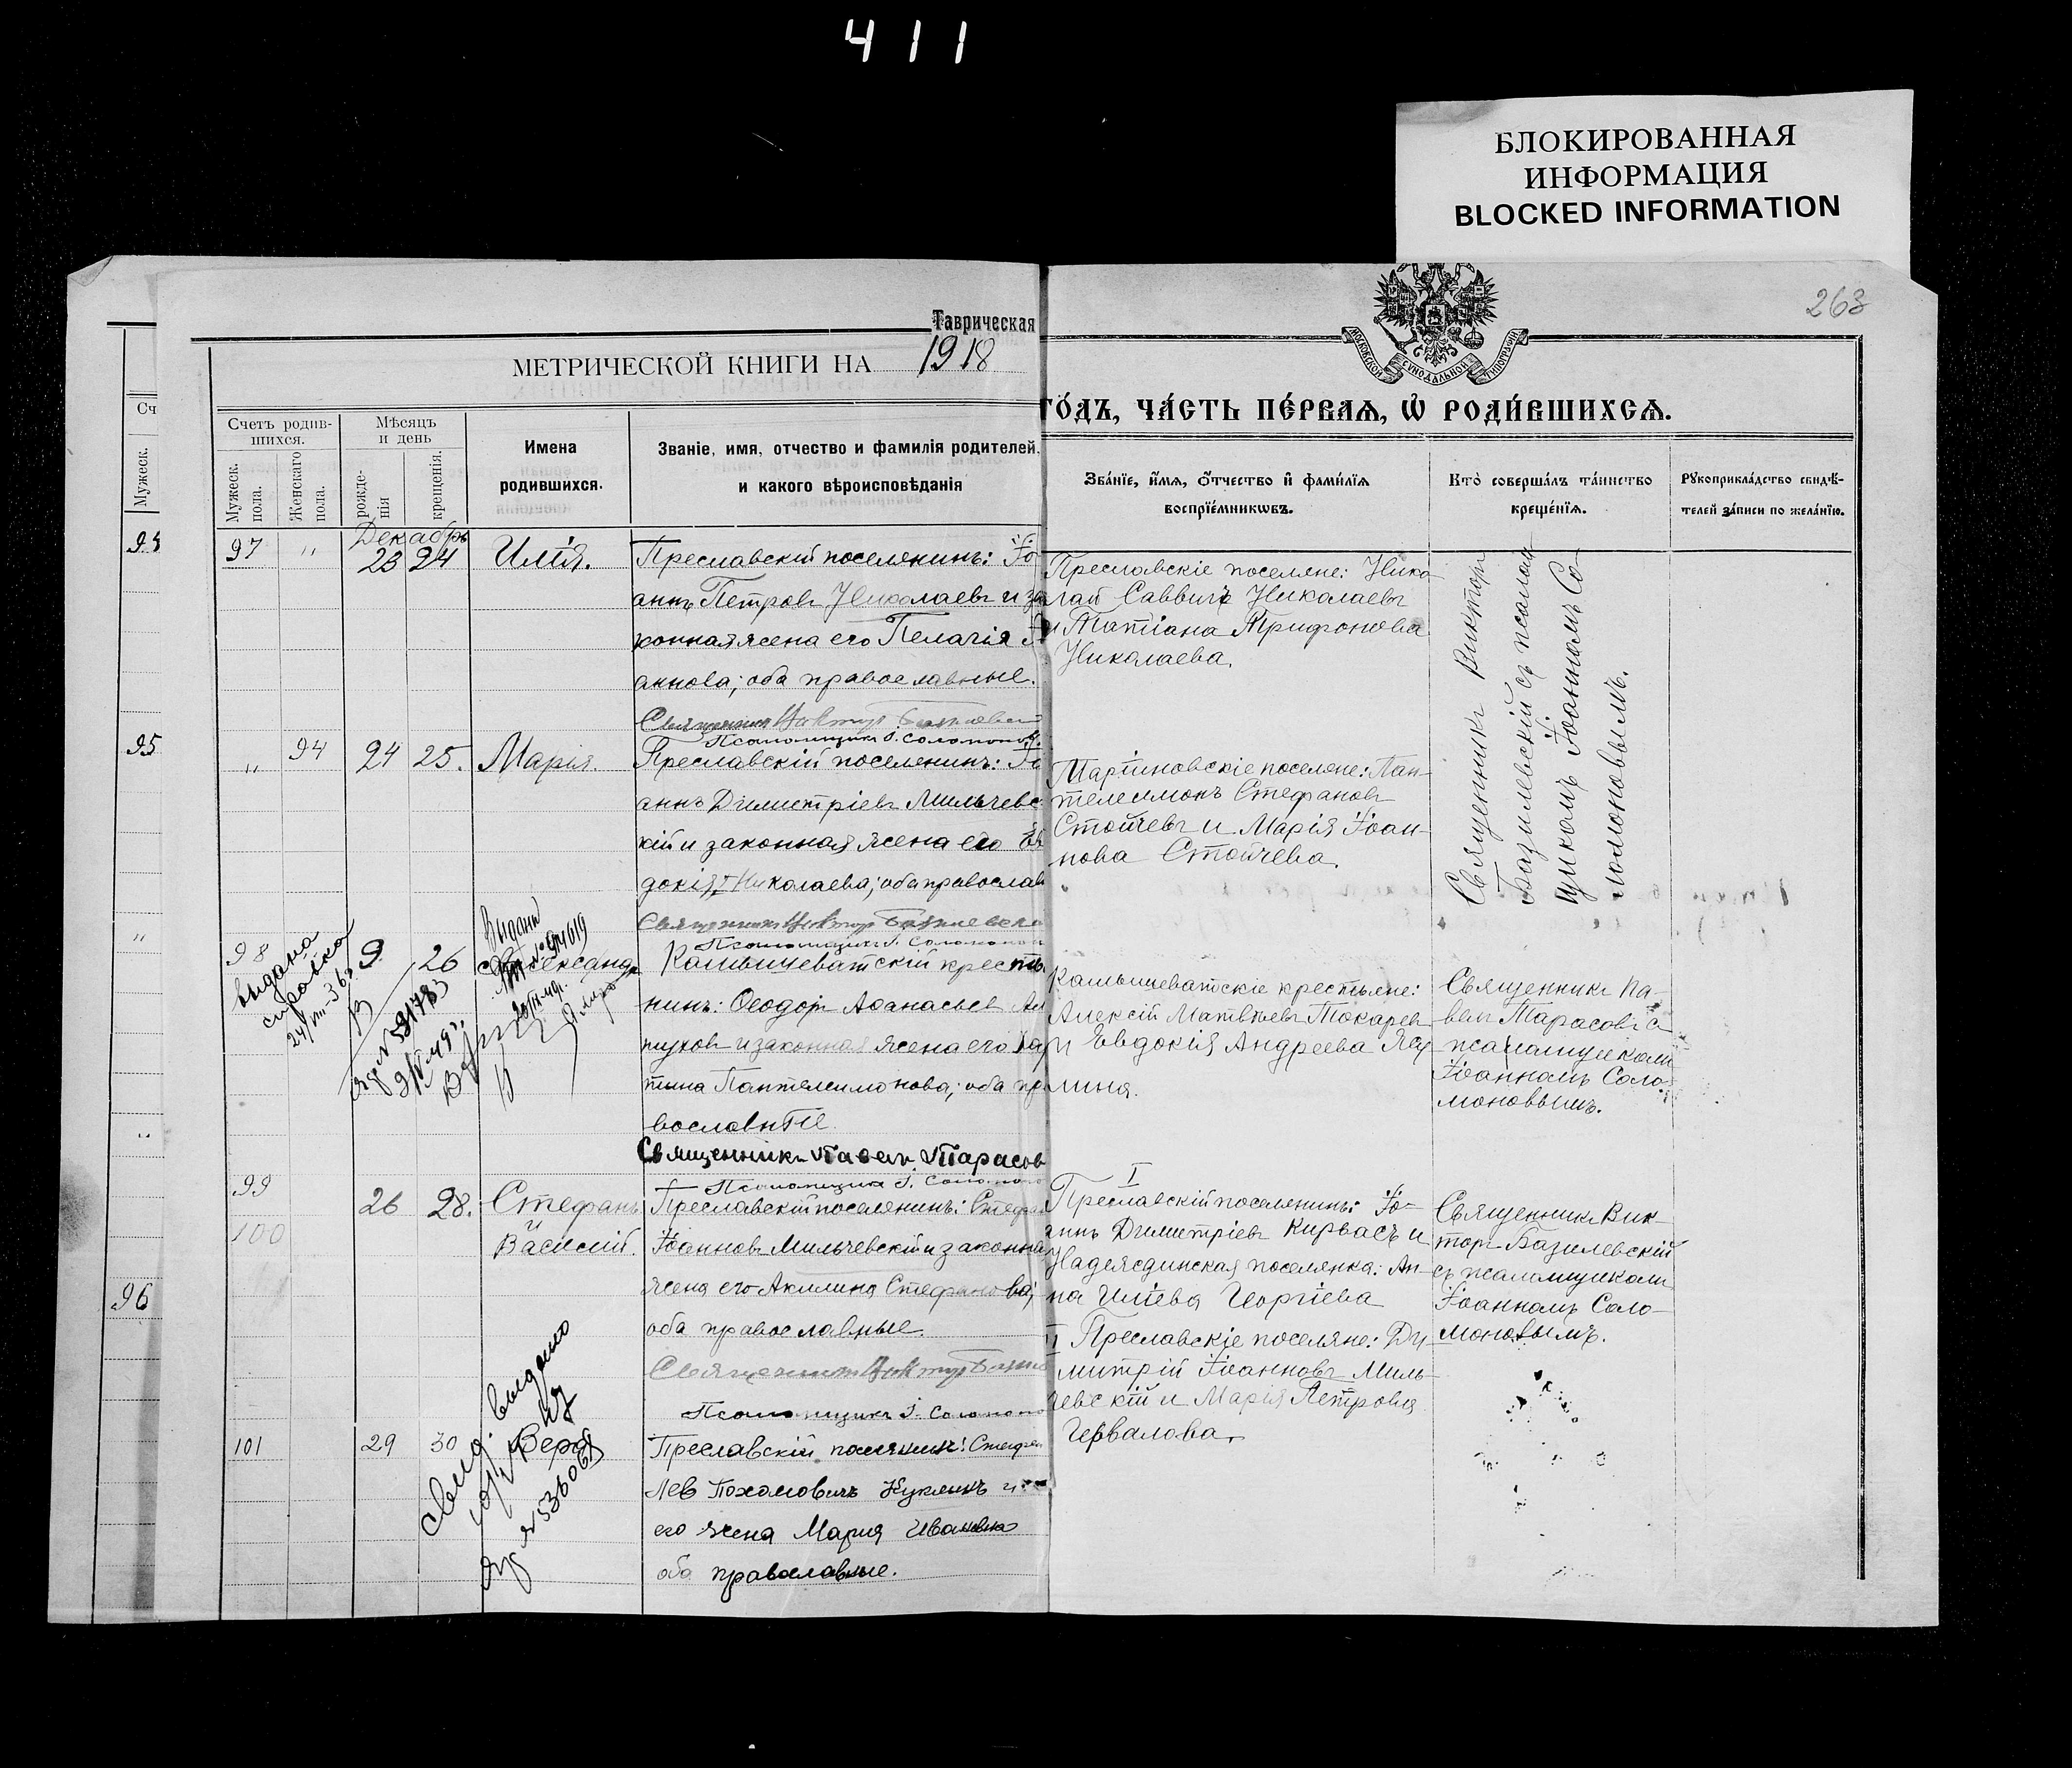 411
БЛОКИРОВАННАЯ
ИНФОРМАЦИЯ
BLOCKED INFORMATION
263
Таврическая
МЕТРИЧЕСКОЙ КНИГИ НА 1918
МОСКОВСКОЙ СѴНОДАЛЬНОЙ ТИПОГРАФІИ
ГО́ДЪ, ЧА́СТЬ ПЕ́РВАѦ, Ѡ҆ РОДИ́ВШИХСѦ.
Сч
Мужеск.
Счетъ родив-
шихся.
Мужеск.
пола.
Женскаго
пола.
Мѣсяцъ
и день
рожде-
нія
крещенія.
Имена
родившихся.
Званіе, имя, отчество и фамилія родителей,
и какого вѣроисповѣданія
Зва́нїе, и҆́мѧ, ѻ҆́тчество и҆ фами́лїѧ
воспрїе́мникѡвъ.
Кто̀ соверша́лъ та́инство
креще́нїѧ.
Рꙋкоприкла́дство свидѣ́-
телей за́писи по жела́нїю.
95
"
"
96
Декабрь
97 " 23 24 Илія.
Преславскій поселянинъ: Іо
аннъ Петровъ Николаевъ и за
конная жена его Пелагія
аннова; оба православные.
Священникъ Виктор Базилевск
Псаломщикъ І. Соломонов
Преславскіе поселяне: Нико-
лай Саввичъ Николаевъ
и Татіана Трифонова
Николаева.
Священникъ Викторъ
Базилевскій съ псалом-
щикомъ Іоанномъ Со-
ломоновымъ.
" 94 24 25. Марія.
Преславскій поселянинъ: Іо
аннъ Димитріевъ Мильчевс
кій и законная жена его Ев
докія Николаева; оба православ
Священникъ Виктор Базилевск
Псаломщикъ І. Соломонов
Мартиновскіе поселяне: Пан-
телеимонъ Стефановъ
Стойчевъ и Марія Іоан-
нова Стойчева.
98 9 26 Александръ
выдана
справка
Выданы
Камышеватскій крестья
нинъ: Ѳеодоръ Аѳанасьев
пуховъ и законная жена его Ха
тина Пантелеимонова; оба пр
вославные
Священникъ Павелъ Тарасов
Псаломщикъ І. Соломонов
Камышеватскіе крестьяне:
Алексій Матвѣевъ Токарев
и Евдокія Андреева
Священникъ Па-
велъ Тарасовъ с
псаломщикомъ
Іоанномъ Соло-
моновымъ.
99
100
26 28. Стефанъ
и
Василій.
Преславскій поселянинъ: Стефан
Іоанновъ Мильчевскій и законна
жена его Акилина Стефанова;
оба православные.
Священникъ Виктор Базил
Псаломщикъ І. Соломоно
I
Преславскій поселянинъ: Іо-
аннъ Димитріевъ Кирвасъ и
Надеждинская поселянка: Ан-
на Иліева Георгіева
II Преславскіе поселяне: Ди
митрій Іоанновъ Миль-
чевскій и Марія Петрова
Червалова.
Священникъ Вик-
торъ Базилевскій
съ псаломщикомъ
Іоанномъ Соло-
моновымъ.
101 29 30 Вера
свид. выдано
Преславскій поселянинъ:
Лев Похомовичъ Куклинъ и
его жена Мария Ивановна
оба православные.